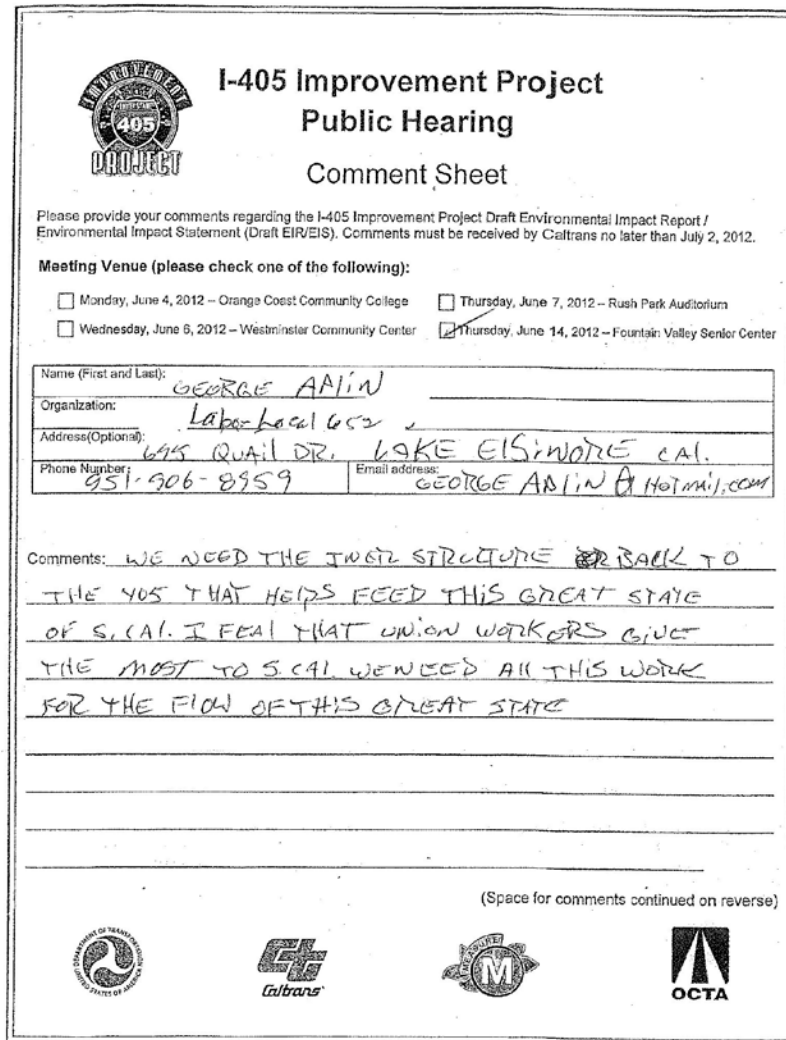 IMPROVEMENT
405
PROJECT
I-405 Improvement Project
Public Hearing
Comment Sheet
Please provide your comments regarding the I-405 Improvement Project Draft Environmental Impact Report /
Environmental Impact Statement (Draft EIR/EIS). Comments must be received by Caltrans no later than July 2, 2012.
Meeting Venue (please check one of the following):
Monday, June 4, 2012 – Orange Coast Community College
Thursday, June 7, 2012 – Rush Park Auditorium
Wednesday, June 6, 2012 – Westminster Community Center
Thursday, June 14, 2012 – Fountain Valley Senior Center
Name (First and Last): GEORGE
Organization: Labor Local 652
Address(Optional): QUAIL DR. LAKE ELSINORE CAL.
Phone Number: 951-906-8959
Email address: GEORGE @ HOTMAIL.COM
Comments: WE NEED THE STRUCTURE BACK TO
THE 405 THAT HELPS FEED THIS GREAT STATE
OF S. CAL. I FEAL THAT UNION WORKERS GIVE
THE MOST TO S. CAL WE NEED ALL THIS WORK
FOR THE FLOW OF THIS GREAT STATE
(Space for comments continued on reverse)
DEPARTMENT OF TRANSPORTATION
UNITED STATES OF AMERICA
Caltrans
MEASURE
M
OCTA